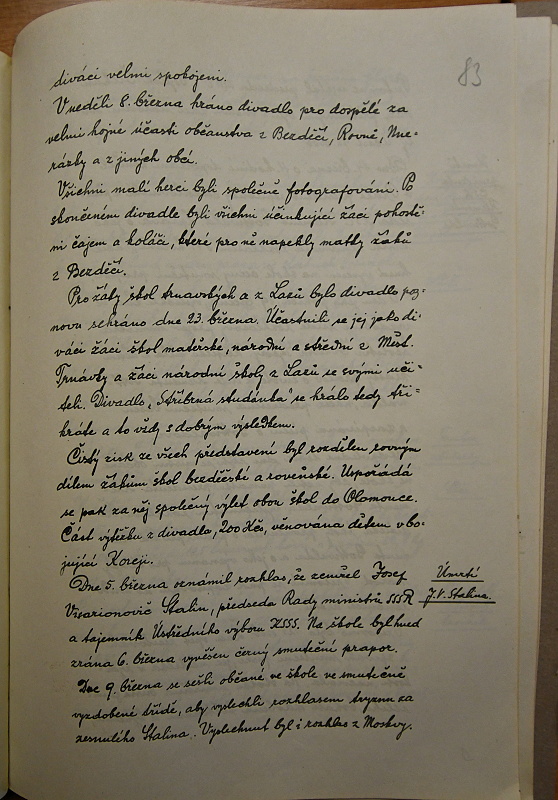 83
diváci velmi spokojeni.
V neděli 8. března hráno divadlo pro dospělé za
velmi hojné účasti občanstva z Bezděčí, Rovné, Une-
rázky a z jiných obcí.
Všichni malí herci byli společně fotografováni. Po
skončeném divadle byli všichni účinkující žáci pohoště-
ni čajem a koláči, které pro ně napekly matky žáků
z Bezděčí.
Pro žáky škol trnavských a z Lazů bylo divadlo poz-
novu sehráno dne 23. března. Účastnili se jej jako di-
váci žáci škol mateřské, národní a střední z Měst.
Trnávky a žáci národní školy z Lazů se svými uči-
teli. Divadlo „Stříbrná studánka" se hrálo tedy tři-
kráte a to vždy s dobrým výsledkem.
Čistý zisk ze všech představení byl rozdělen rovným
dílem žákům škol bezděčské a rovenské. Uspořádá
se pak za něj společný výlet obou škol do Olomouce.
Část výtěžku z divadla, 200 Kčs, věnována dětem v bo-
jující Koreji.
Dne 5. března oznámil rozhlas, že zemřel Josef
Visarionovič Stalin, předseda Rady ministrů SSSR
a tajemník Ústředního výboru KSSS. Na škole byl hned
zrána 6. března vyvěšen černý smuteční prapor.
Úmrtí
J. V. Stalina.
Dne 9. března se sešli občané ve škole ve smutečně
vyzdobené třídě, aby vyslechli rozhlasem tryznu za
zesnulého Stalina. Vyslechnut byl i rozhlas z Moskvy.